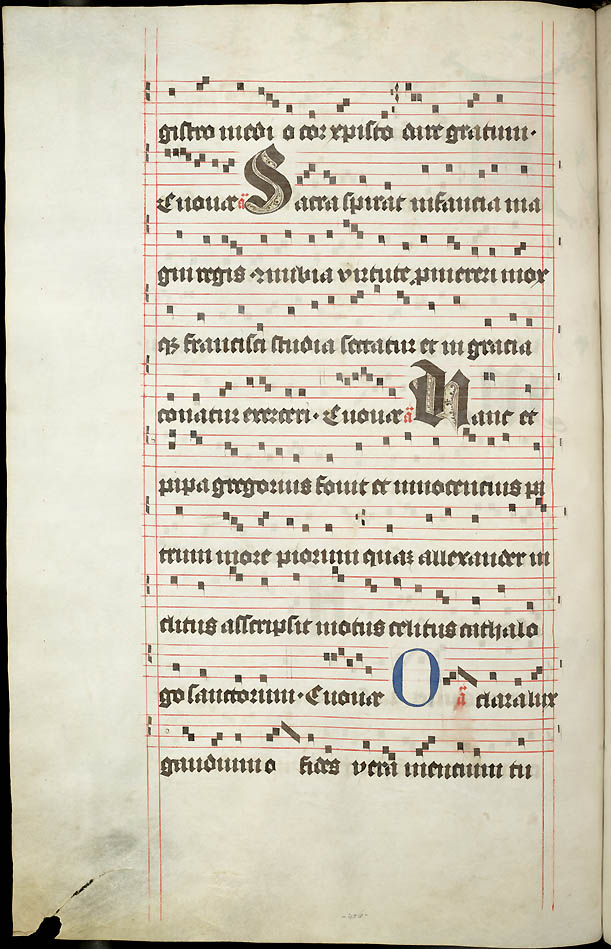 gistro medico cor xpisto dare gratum ·
Euouae ã Sacra spirat infancia ma
gni regis
que francisci studia sectatur et in gracia
conatur exerceri · Euouae ã Hanc et
pipa gregorius fouit et innocencius pa
trum more piorum quam allexander in
clitus asscripsit motus celitus cathalo
go sanctorum · Euouae O ã clara lux
gaudium o fides vera mentium tu